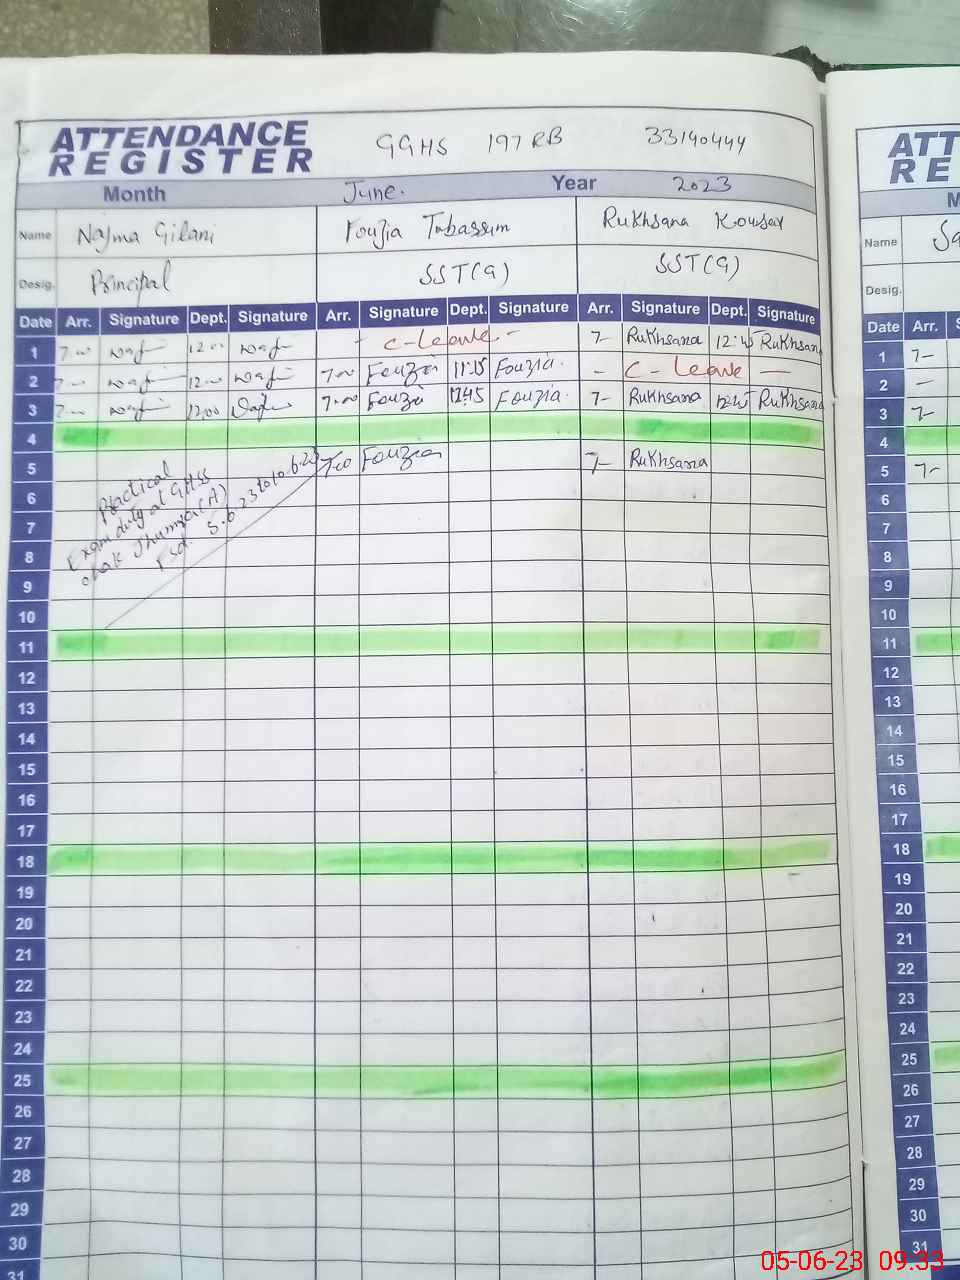 ATTENDANCE REGISTER GGHS 197 RB 33140444
Month June. Year 2023
Name Najma Gilani Fouzia Tabassum Rukhsana Kousar
Desig. Principal SST(G) SST(G)
Date Arr. Signature Dept. Signature Arr. Signature Dept. Signature Arr. Signature Dept. Signature
1 7:00 12:00 - C-Leave - 7- Rukhsana Rukhsana
2 12:00 7:00 Fouzia 11:15 Fouzia. - C-Leave -
3 12:00 7:00 Fouzia 11:45 Fouzia. 7- Rukhsana Rukhsana
4
5 7:00 Fouzia 7- Rukhsana
Practical
Exam duty at GHSS
chak Jhumra (A)
Fsd. 5.6.23 to 10.6.23
6
7
8
9
10
11
12
13
14
15
16
17
18
19
20
21
22
23
24
25
26
27
28
29
30
31
ATT
RE
M
Name Sa
Desig.
Date Arr. S
1 7-
2 -
3 7-
4
5 7-
6
7
8
9
10
11
12
13
14
15
16
17
18
19
20
21
22
23
24
25
26
27
28
29
30
31
05-06-23 09:33